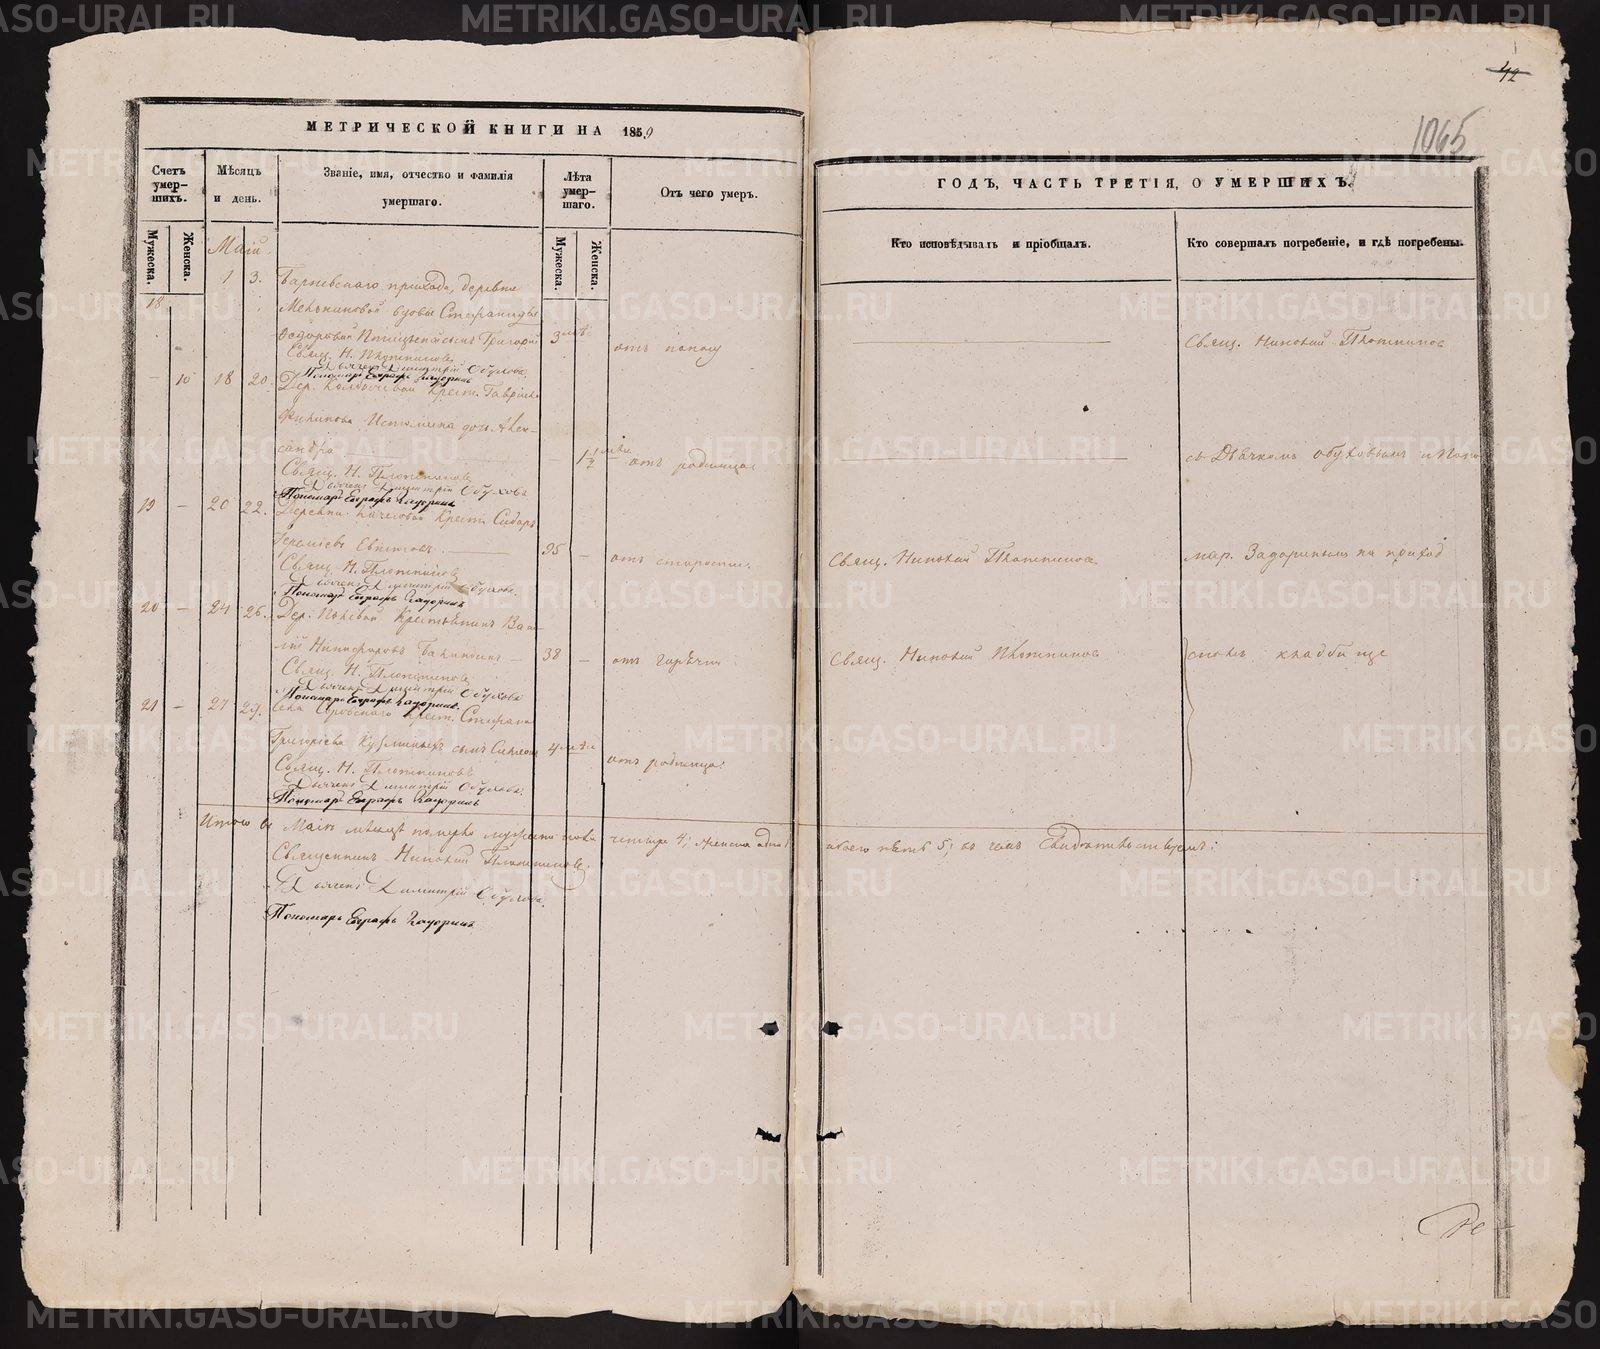 42
1065
МЕТРИЧЕСКОЙ КНИГИ НА 1859
ГОДЪ, ЧАСТЬ ТРЕТІЯ, О УМЕРШИХЪ.
Счетъ умер-шихъ.
Мужеска.
Женска.
Мѣсяцъ и день.
Званіе, имя, отчество и фамилія умершаго.
Лѣта умер-шаго.
Мужеска.
Женска.
Отъ чего умеръ.
Кто исповѣдывалъ и пріобщалъ.
Кто совершалъ погребеніе, и гдѣ погребены.
Маій
18 1 3. прихода, деревни
вдовы Стефаниды
сынъ Григорій 3
отъ поносу
Свящ. Николай Плотниковъ
Свящ. Н. Плотниковъ
Дьячекъ Димитрій Обуховъ
Пономарь Евграфъ Задоринъ
10 18 20. Дер. Крест. Гавріила
Филипова Истомина дочь Алек-
сандра 1½ отъ родимца.
съ Дьячкомъ Обуховымъ и Поно
Свящ. Н. Плотниковъ
Дьячекъ Димитрій Обуховъ
Пономарь Евграфъ Задоринъ
19 20 22. Деревни Крест. Сидоръ
95 отъ старости.
Свящ. Николай Плотниковъ
мар. Задоринымъ на приход
Свящ. Н. Плотниковъ
Дьячекъ Димитрій Обуховъ
Пономарь Евграфъ Задоринъ
20 24 26. Дер. Крестьянинъ Васи
лій Никифоровъ 38 отъ горячки
Свящ. Николай Плотниковъ
скомъ кладбище
Свящ. Н. Плотниковъ
Дьячекъ Димитрій Обуховъ
Пономарь Евграфъ Задоринъ
21 27 29. Села Крест. Стефана
Григорьева сынъ 4 отъ родимца.
Свящ. Н. Плотниковъ
Дьячекъ Димитрій Обуховъ
Пономарь Евграфъ Задоринъ
Итого въ Маіи мѣсяцѣ померло мужеска пола четыре 4; женска одна 1 обоего пять 5; въ чемъ свидѣтельствуемъ:
Священникъ Николай Плотниковъ
Дьячекъ Димитрій Обуховъ
Пономарь Евграфъ Задоринъ
METRIKI.GASO-URAL.RU